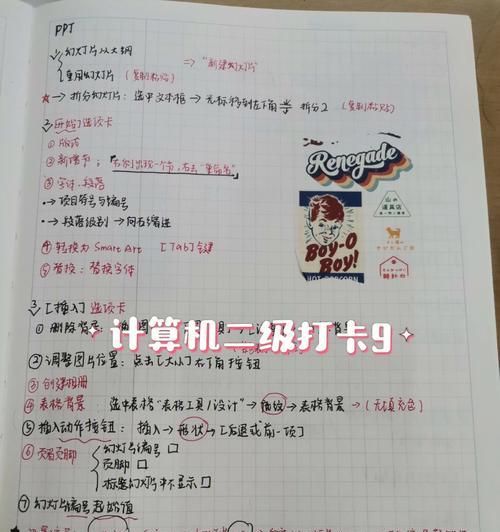 PPT
幻灯片从大纲
重用幻灯片 (复制粘贴)
=> "新建幻灯片"
★→ 拆分幻灯片: 选中文本框 → 光标移到左下角 拆分2 (复制粘贴)
2. [开始] 选项卡
① 版式
② 新增节: 右侧出现一个节, 右击"重命名"
③ 字体, 段落
→ 项目符号与编号
→ 段落级别 → 向右缩进
④ 转换为 Smart Art [Tab]键
⑤ 替换: 替换字体
Renegade
BOY-O BOY!
HOT POPCORN
山の道具店
3. [插入] 选项卡
① 删除背景:
计算机二级打卡9
② 调整图片位置: 点击[大小]右下角按钮
③ 创建相册
④ 表格背景: 选中表格 "表格工具/设计" → 底纹 → 表格背景 → (无填充色)
⑤ 插入动作按钮: 插入 → 形状 → [后退或前一项]
⑥ 页眉页脚
幻灯片编号 □
页脚 □
标题幻灯片中不显示 □
⑦ 幻灯片编号起始值